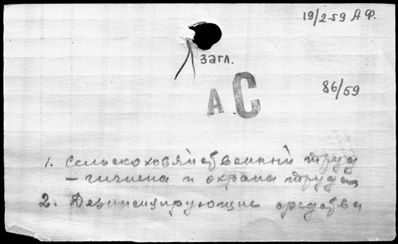 19/2-59 А.Ф.
загл.
АС
86/59
1. Сельскохозяйственный труд
– гигиена и охрана труда
2. Дезинсекцирующие средства